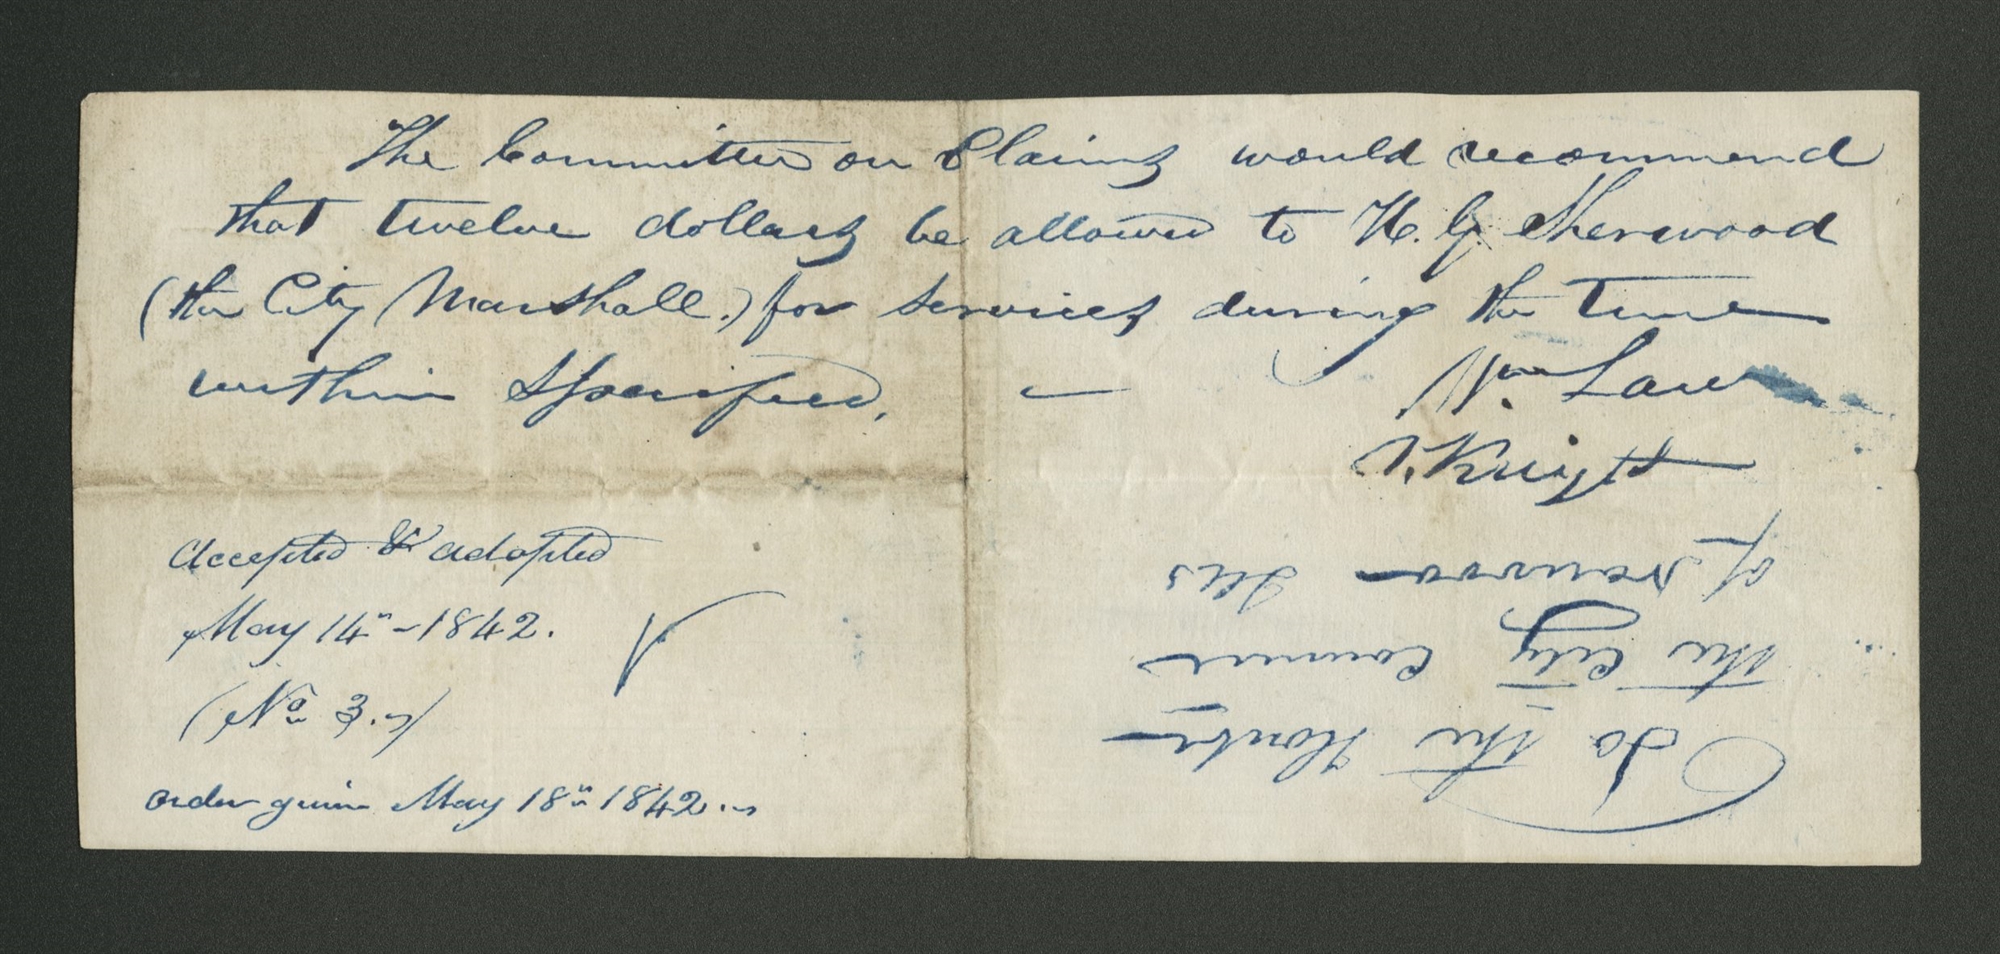 The Committee on Claims would recommend
that twelve dollars be allowed to H. G. Sherwood
(the City Marshall.) for services during the time
within Specified. —
Wm. Law
V. Knight
accepted & adopted
May 14th - 1842.
(No 3.)
order given May 18th 1842.
To the Honbe
the City Council
of Nauvoo Ills